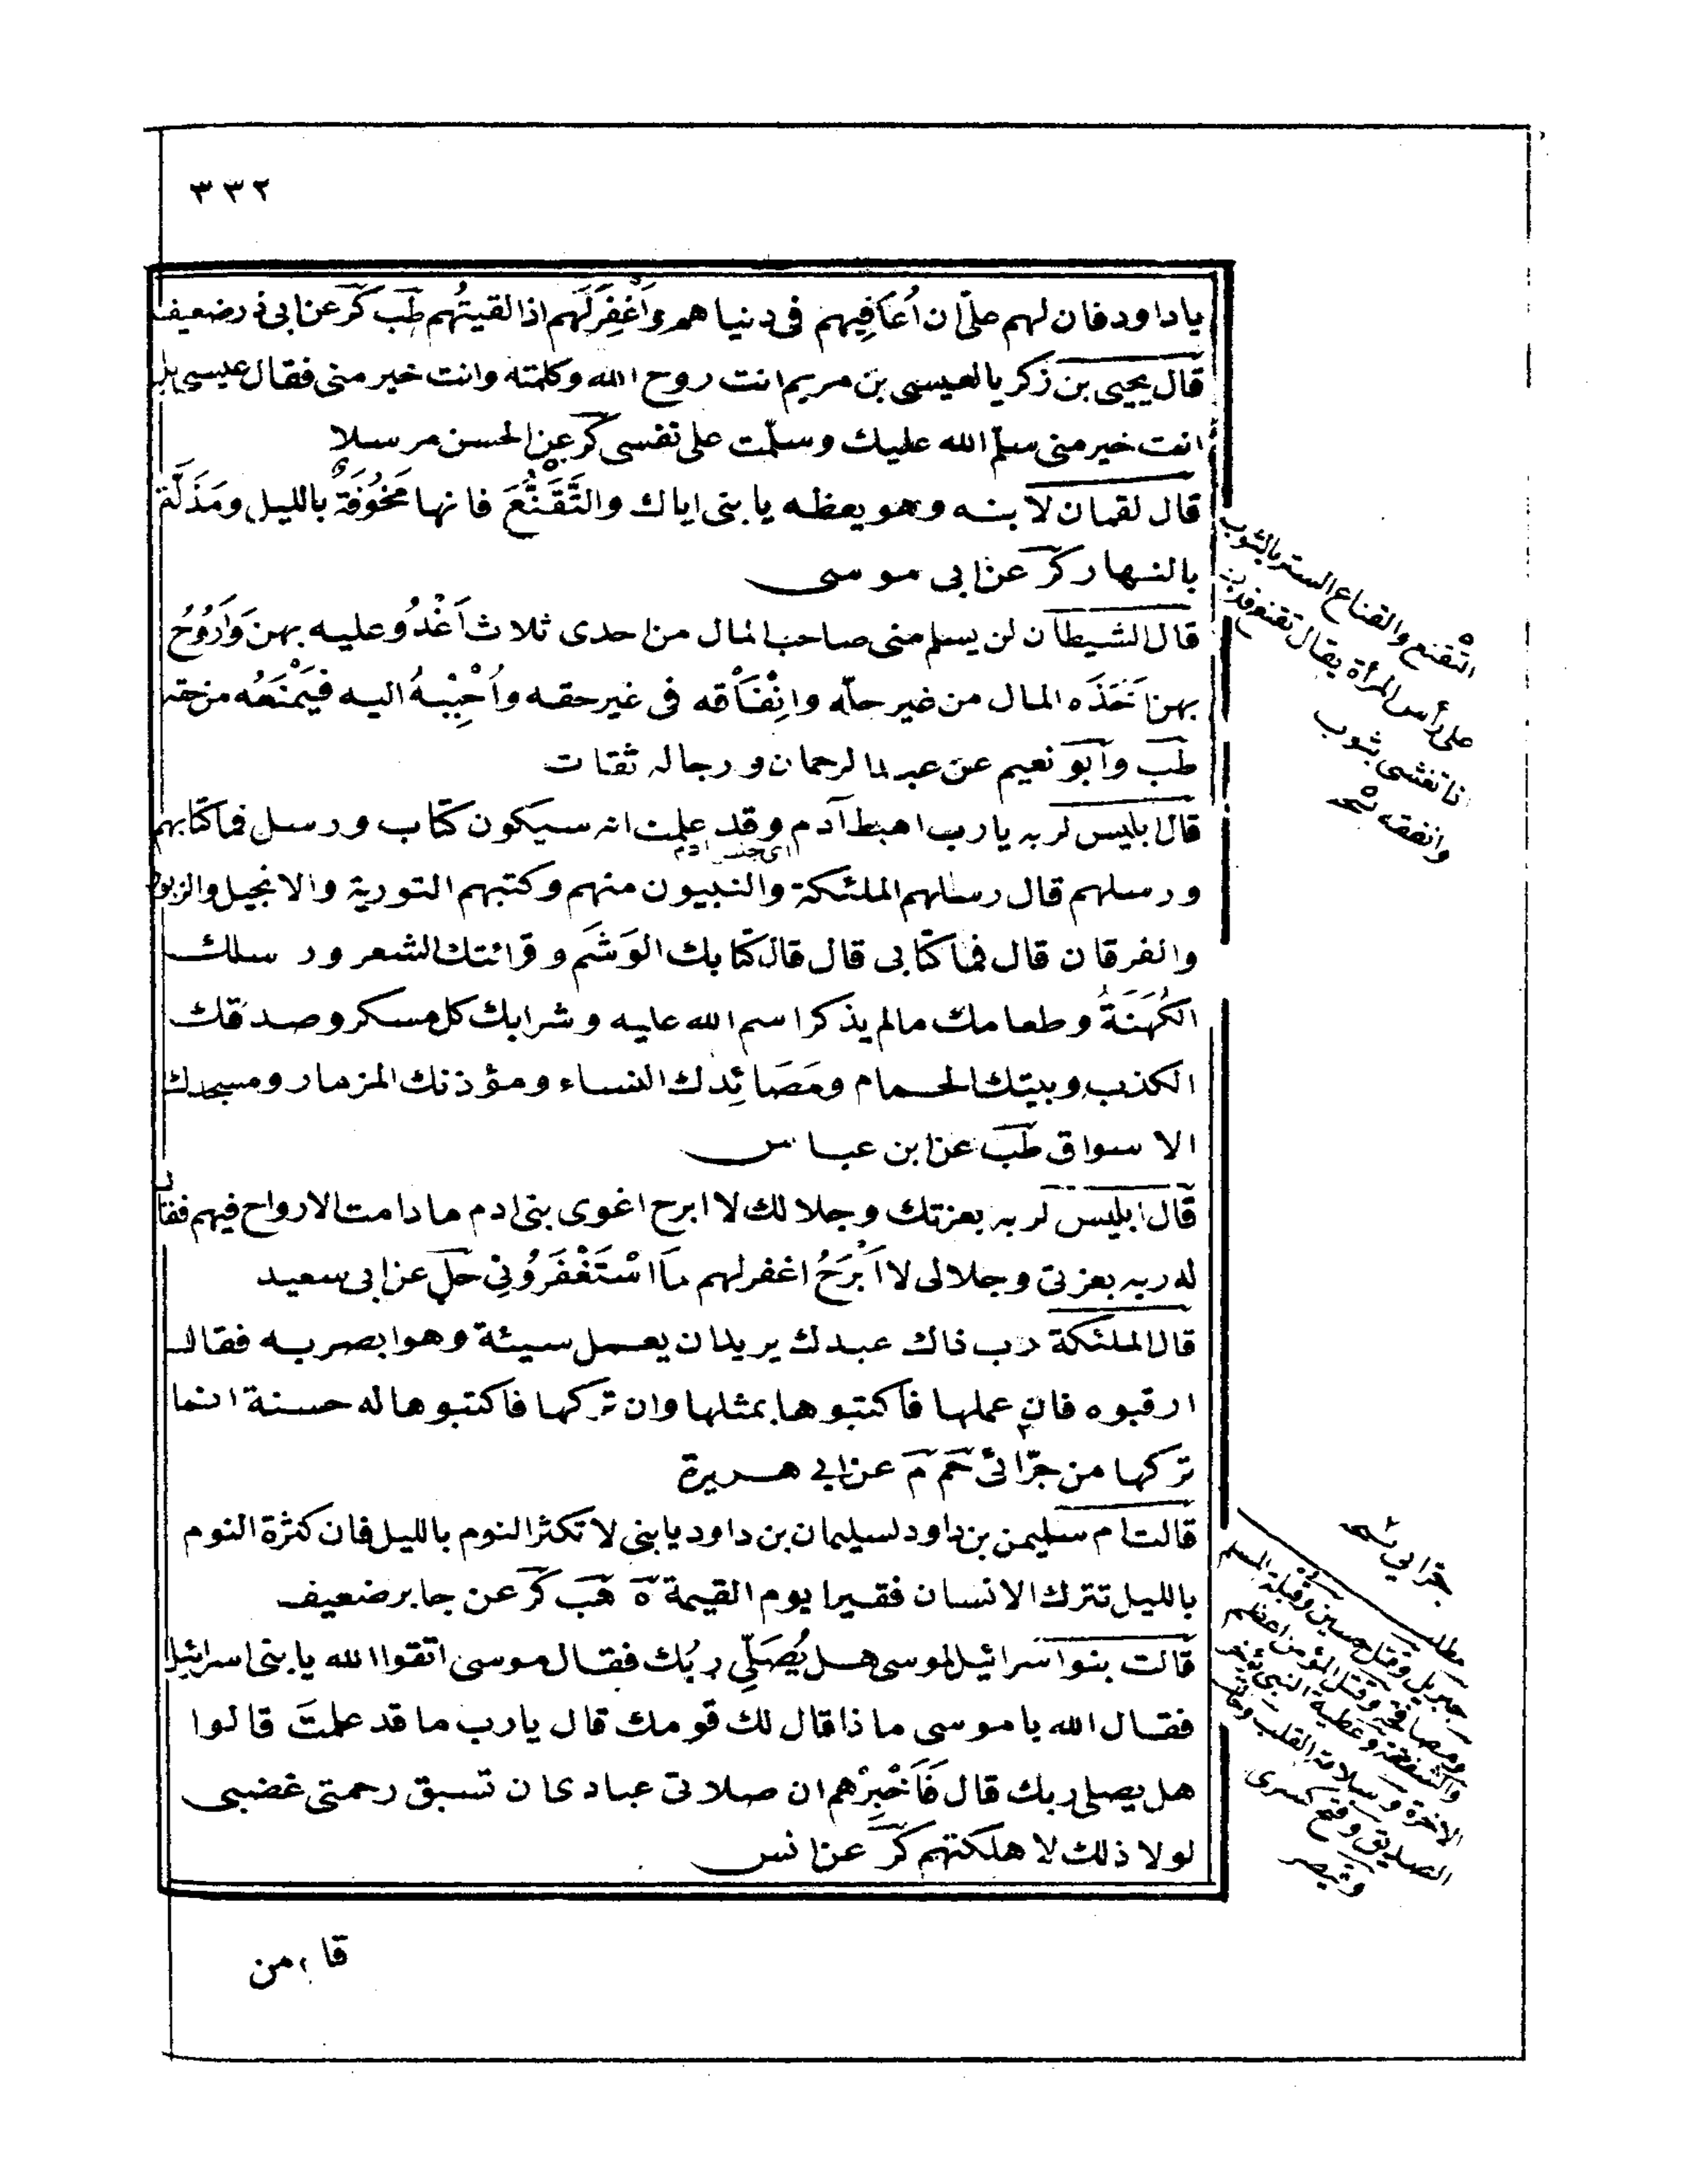 ٣٣٢
ياداود فان لهم علىّ ان اُعَافِيهم فى دنياهم وَاَغْفِرَلَهم اذا لقيتُهم طب كر عن ابى ذر ضعيف
قال يحيى بن زكريا لعيسى بن مريم انت روح الله وكلمته وانت خير منى فقال عيسى بل
انت خير منى سلّم الله عليك وسلّمت على نفسى كر عن الحسن مرسلا
قال لقمان لابنه وهو يعظه يا بنى اياك والتَّقَنُّعَ فانها مَخُوفَةٌ بالليل ومَذَلَّة
بالنهار كر عن ابى موسى
قال الشيطان لن يسلم منى صاحب المال من احدى ثلاث اَغْدُو عليه بهن وَاَرُوُحُ
بهن اَخَذَه المال من غير حلّه واِنْفَاقه فى غير حقه واُحْبِبْهُ اليه فَيَمْنَعُه من حقه
طب وابو نعيم عن عبد الرحمان ورجاله ثقات
قال ابليس لربه يارب اهبط آدم وقد علمت انه سيكون كتاب ورسل فما كتابهم
اى جنس ادم
ورسلهم قال رسلهم الملئكة والنبيون منهم وكتبهم التورية والانجيل والزبور
والفرقان قال فما كتابى قال قال كتابك الوَشَم وقرائتك الشعر ورسلك
الكُهَنَةُ وطعامك مالم يذكر اسم الله عليه وشرابك كل مسكر وصدقك
الكذب وبيتك الحمام ومَصَائِدك النساء ومؤذنك المزمار ومسجدك
الاسواق طب عن ابن عباس
قال ابليس لربه بعزتك وجلالك لا ابرح اغوى بنى ادم مادامت الارواح فيهم فقال
له ربه بعزتى وجلالى لا اَبْرَحُ اغفرلهم مَا اسْتَغْفَرُونِى حل عن ابى سعيد
قال الملئكة رب ذاك عبدك يريد ان يعمل سيئة وهو ابصر به فقال
ارقبوه فان عملها فاكتبوها بمثلها وان تركها فاكتبوها له حسنة انما
تركها من جرّائى حم م عن ابى هريرة
قالت ام سليمن بن داود لسليمان بن داود يابنى لا تكثر النوم بالليل فان كثرة النوم
بالليل تترك الانسان فقيرا يوم القيمة ه هب كر عن جابر ضعيف
قالت بنوا سرائيل لموسى هل يُصَلِّى ربُك فقال موسى اتقوا الله يا بنى اسرائيل
فقال الله يا موسى ماذا قال لك قومك قال يارب ما قد علمتَ قالوا
هل يصلى ربك قال فَاَخْبِرْهم ان صلاتى عبادى ان تسبق رحمتى غضبى
لولا ذلك لاهلكتهم كر عن انس
التقنع والقناع الستر بالثوب
على رأس المرأة يقال تقنع
تغشى بثوب
جرائى
مطلب
جبريل وقتل حسين وقبلة المسلم
ومصافحة وقتل المؤمن اعظم
والشفقة وعطية النبى
الاخرة وسلامة القلب
الصديق وفتح كسرى
وقيصر
قا من